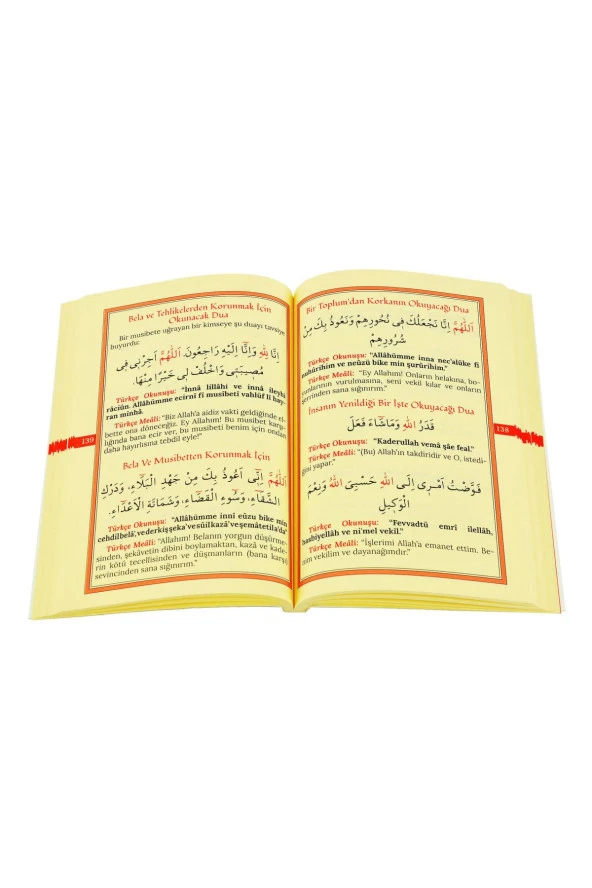 Bir Toplum'dan Korkanın Okuyacağı Dua
اَللّٰهُمَّ اِنَّا نَجْعَلُكَ فِى نُحُورِهِمْ وَنَعُوذُ بِكَ مِنْ
شُرُورِهِمْ
Türkçe Okunuşu: “Allâhümme inna nec'alüke fi
nuhûrihim ve neûzü bike min şurûrihim.”
Türkçe Meâli: “Ey Allahım! Onların helakına, bo-
yunlarının vurulmasına, seni vekil kılar ve onların
şerrinden sana sığınırım.”
İnsanın Yenildiği Bir İşte Okuyacağı Dua
قَدَرُ اللهِ وَمَاشَاءَ فَعَلَ
Türkçe Okunuşu: “Kaderullah vemâ şâe feal.”
Türkçe Meâli: “(Bu) Allah'ın takdiridir ve O, istedi-
ğini yapar.”
فَوَّضْتُ اَمْرِى اِلَى اللهِ حَسْبِىَ اللهُ وَنِعْمَ
الْوَكِيلِ
Türkçe Okunuşu: “Fevvadtü emrî ilellâh,
hasbiyellâh ve ni'mel vekîl.”
Türkçe Meâli: “İşlerimi Allah'a emanet ettim. Be-
nim vekilim ve dayanağımdır.”
138
Bela ve Tehlikelerden Korunmak İçin
Okunacak Dua
Bir musibete uğrayan bir kimseye şu duayı tavsiye
buyurdu:
اِنَّا لِلّٰهِ وَاِنَّا اِلَيْهِ رَاجِعُونَ. اَللّٰهُمَّ اَجِرْنِى فِى
مُصِيبَتِى وَاخْلُفْ لِى خَيْرًا مِنْهَا.
Türkçe Okunuşu: “İnnâ lillâhi ve innâ ileyhi
râciûn. Allâhümme ecirnî fî musîbetî vahlüf lî hay-
ran minhâ.
Türkçe Meâli: “Biz Allah'a aidiz vakti geldiğinde el-
bette ona döneceğiz. Ey Allahım! Bu musibet karşı-
lığında bana ecir ver, bu musibeti benim için ondan
daha hayırlısına tebdil eyle!”
Bela Ve Musibetten Korunmak İçin
اَللّٰهُمَّ اِنِّى اَعُوذُ بِكَ مِنْ جَهْدِ الْبَلَاءِ، وَدَرَكِ
الشَّقَاءِ، وَسُوءِ الْقَضَاءِ، وَشَمَاتَةِ الْاَعْدَاءِ.
Türkçe Okunuşu: “Allâhümme innî eûzu bike min
cehdilbelâ', vederkişşeka' vesûilkazâ' veşemâtetila'dâ'
Türkçe Meâli: “Allahım! Belanın yorgun düşürme-
sinden, şekâvetin dibini boylamaktan, kazâ ve kade-
rin kötü tecellisinden ve düşmanların (bana karşı)
sevincinden sana sığınırım.”
139